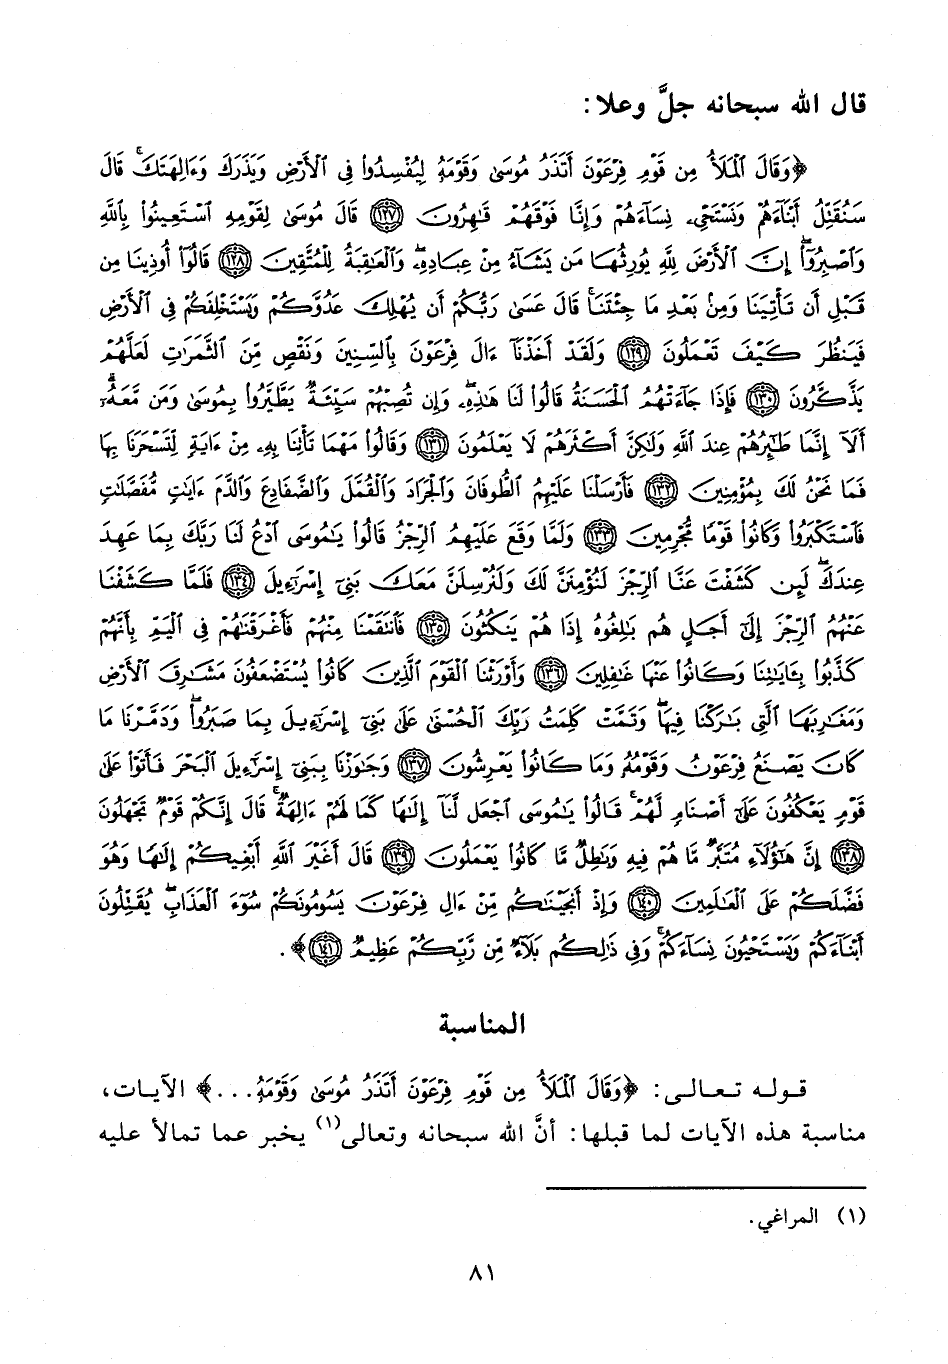 قال الله سبحانه جلَّ وعلا:
﴿وَقَالَ ٱلْمَلَأُ مِن قَوْمِ فِرْعَوْنَ أَتَذَرُ مُوسَىٰ وَقَوْمَهُۥ لِيُفْسِدُوا۟ فِى ٱلْأَرْضِ وَيَذَرَكَ وَءَالِهَتَكَ ۚ قَالَ
سَنُقَتِّلُ أَبْنَآءَهُمْ وَنَسْتَحْىِۦ نِسَآءَهُمْ وَإِنَّا فَوْقَهُمْ قَٰهِرُونَ ﴿١٢٧﴾ قَالَ مُوسَىٰ لِقَوْمِهِ ٱسْتَعِينُوا۟ بِٱللَّهِ
وَٱصْبِرُوٓا۟ ۖ إِنَّ ٱلْأَرْضَ لِلَّهِ يُورِثُهَا مَن يَشَآءُ مِنْ عِبَادِهِۦ ۖ وَٱلْعَٰقِبَةُ لِلْمُتَّقِينَ ﴿١٢٨﴾ قَالُوٓا۟ أُوذِينَا مِن
قَبْلِ أَن تَأْتِيَنَا وَمِنۢ بَعْدِ مَا جِئْتَنَا ۚ قَالَ عَسَىٰ رَبُّكُمْ أَن يُهْلِكَ عَدُوَّكُمْ وَيَسْتَخْلِفَكُمْ فِى ٱلْأَرْضِ
فَيَنظُرَ كَيْفَ تَعْمَلُونَ ﴿١٢٩﴾ وَلَقَدْ أَخَذْنَآ ءَالَ فِرْعَوْنَ بِٱلسِّنِينَ وَنَقْصٍ مِّنَ ٱلثَّمَرَٰتِ لَعَلَّهُمْ
يَذَّكَّرُونَ ﴿١٣٠﴾ فَإِذَا جَآءَتْهُمُ ٱلْحَسَنَةُ قَالُوا۟ لَنَا هَٰذِهِۦ ۖ وَإِن تُصِبْهُمْ سَيِّئَةٌ يَطَّيَّرُوا۟ بِمُوسَىٰ وَمَن مَّعَهُۥٓ ۗ
أَلَآ إِنَّمَا طَٰٓئِرُهُمْ عِندَ ٱللَّهِ وَلَٰكِنَّ أَكْثَرَهُمْ لَا يَعْلَمُونَ ﴿١٣١﴾ وَقَالُوا۟ مَهْمَا تَأْتِنَا بِهِۦ مِنْ ءَايَةٍ لِّتَسْحَرَنَا بِهَا
فَمَا نَحْنُ لَكَ بِمُؤْمِنِينَ ﴿١٣٢﴾ فَأَرْسَلْنَا عَلَيْهِمُ ٱلطُّوفَانَ وَٱلْجَرَادَ وَٱلْقُمَّلَ وَٱلضَّفَادِعَ وَٱلدَّمَ ءَايَٰتٍ مُّفَصَّلَٰتٍ
فَٱسْتَكْبَرُوا۟ وَكَانُوا۟ قَوْمًا مُّجْرِمِينَ ﴿١٣٣﴾ وَلَمَّا وَقَعَ عَلَيْهِمُ ٱلرِّجْزُ قَالُوا۟ يَٰمُوسَى ٱدْعُ لَنَا رَبَّكَ بِمَا عَهِدَ
عِندَكَ ۖ لَئِن كَشَفْتَ عَنَّا ٱلرِّجْزَ لَنُؤْمِنَنَّ لَكَ وَلَنُرْسِلَنَّ مَعَكَ بَنِىٓ إِسْرَٰٓءِيلَ ﴿١٣٤﴾ فَلَمَّا كَشَفْنَا
عَنْهُمُ ٱلرِّجْزَ إِلَىٰٓ أَجَلٍ هُم بَٰلِغُوهُ إِذَا هُمْ يَنكُثُونَ ﴿١٣٥﴾ فَٱنتَقَمْنَا مِنْهُمْ فَأَغْرَقْنَٰهُمْ فِى ٱلْيَمِّ بِأَنَّهُمْ
كَذَّبُوا۟ بِـَٔايَٰتِنَا وَكَانُوا۟ عَنْهَا غَٰفِلِينَ ﴿١٣٦﴾ وَأَوْرَثْنَا ٱلْقَوْمَ ٱلَّذِينَ كَانُوا۟ يُسْتَضْعَفُونَ مَشَٰرِقَ ٱلْأَرْضِ
وَمَغَٰرِبَهَا ٱلَّتِى بَٰرَكْنَا فِيهَا ۖ وَتَمَّتْ كَلِمَتُ رَبِّكَ ٱلْحُسْنَىٰ عَلَىٰ بَنِىٓ إِسْرَٰٓءِيلَ بِمَا صَبَرُوا۟ ۖ وَدَمَّرْنَا مَا
كَانَ يَصْنَعُ فِرْعَوْنُ وَقَوْمُهُۥ وَمَا كَانُوا۟ يَعْرِشُونَ ﴿١٣٧﴾ وَجَٰوَزْنَا بِبَنِىٓ إِسْرَٰٓءِيلَ ٱلْبَحْرَ فَأَتَوْا۟ عَلَىٰ
قَوْمٍ يَعْكُفُونَ عَلَىٰٓ أَصْنَامٍ لَّهُمْ ۚ قَالُوا۟ يَٰمُوسَى ٱجْعَل لَّنَآ إِلَٰهًا كَمَا لَهُمْ ءَالِهَةٌ ۚ قَالَ إِنَّكُمْ قَوْمٌ تَجْهَلُونَ
﴿١٣٨﴾ إِنَّ هَٰٓؤُلَآءِ مُتَبَّرٌ مَّا هُمْ فِيهِ وَبَٰطِلٌ مَّا كَانُوا۟ يَعْمَلُونَ ﴿١٣٩﴾ قَالَ أَغَيْرَ ٱللَّهِ أَبْغِيكُمْ إِلَٰهًا وَهُوَ
فَضَّلَكُمْ عَلَى ٱلْعَٰلَمِينَ ﴿١٤٠﴾ وَإِذْ أَنجَيْنَٰكُم مِّنْ ءَالِ فِرْعَوْنَ يَسُومُونَكُمْ سُوٓءَ ٱلْعَذَابِ ۖ يُقَتِّلُونَ
أَبْنَآءَكُمْ وَيَسْتَحْيُونَ نِسَآءَكُمْ ۚ وَفِى ذَٰلِكُم بَلَآءٌ مِّن رَّبِّكُمْ عَظِيمٌ ﴿١٤١﴾﴾.
المناسبة
قوله تعالى: ﴿وَقَالَ ٱلْمَلَأُ مِن قَوْمِ فِرْعَوْنَ أَتَذَرُ مُوسَىٰ وَقَوْمَهُۥ...﴾ الآيات،
مناسبة هذه الآيات لما قبلها: أنَّ الله سبحانه وتعالى(١) يخبر عما تمالأ عليه
(١) المراغي.
٨١